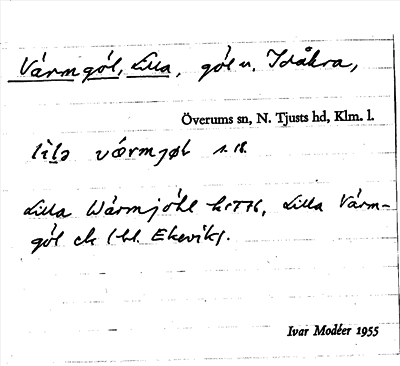 Värmgöl, Lilla, göl v. Idåkra,
Överums sn, N. Tjusts hd, Klm. l.
lìlə værmjøl s. 18.
Lilla Wärmjöhl k 1776, Lilla Värm-
göl ek (bl. Ekevik).
Ivar Modéer 1955